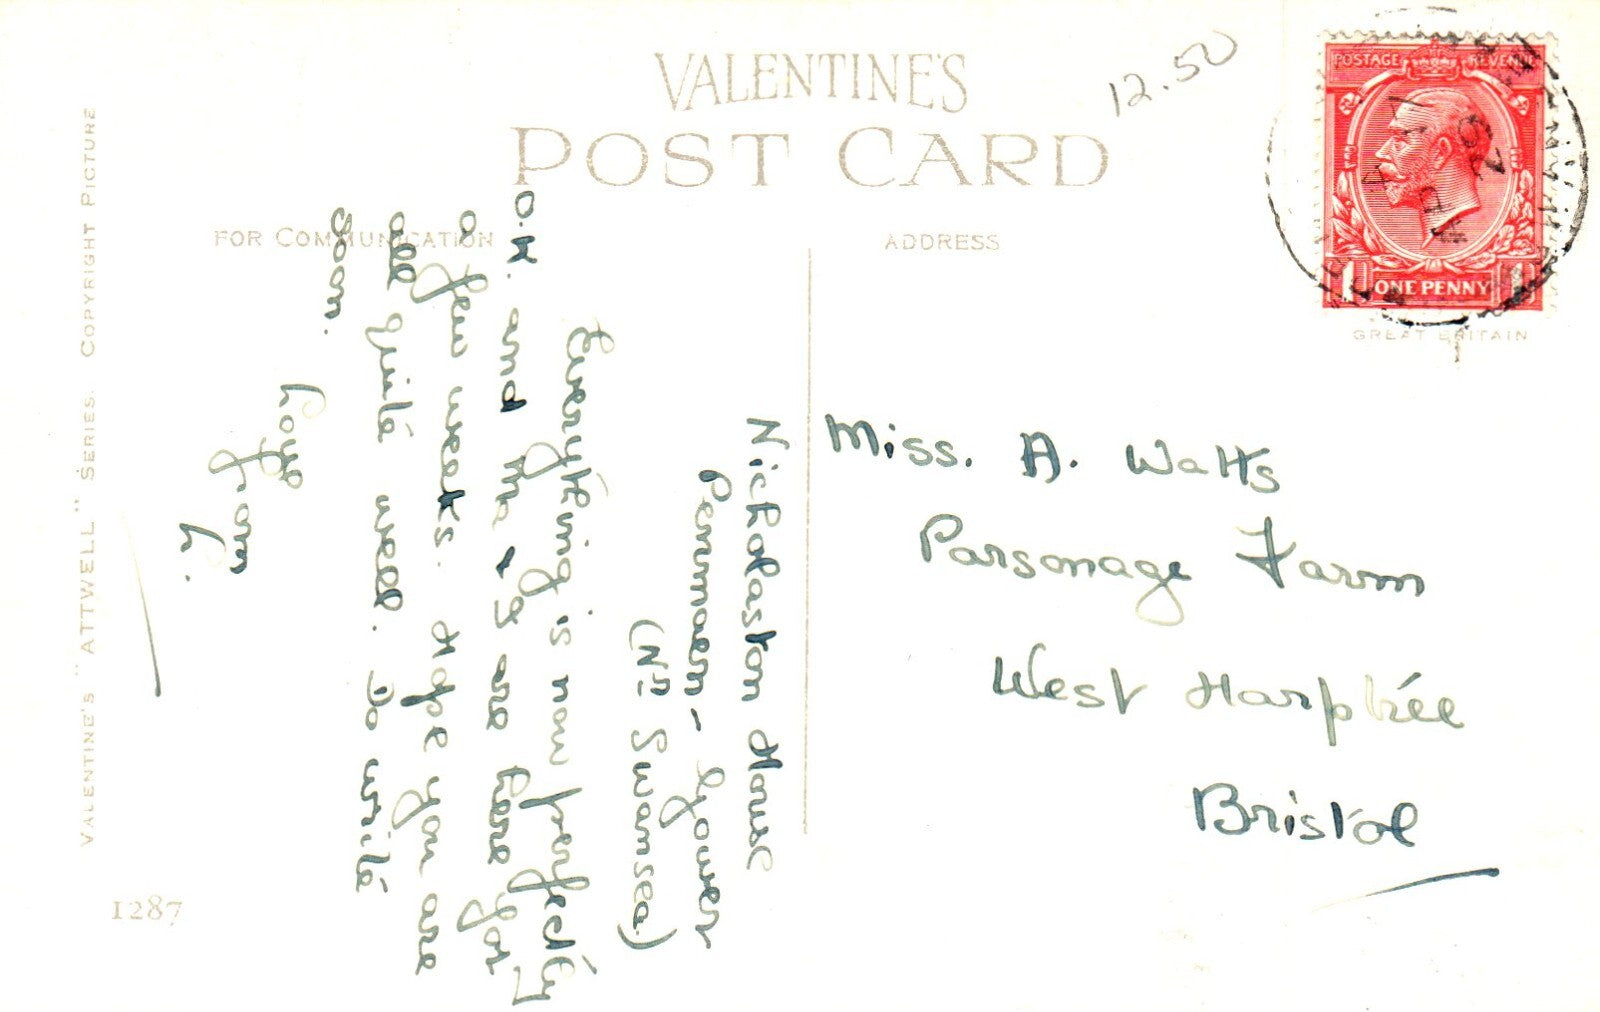 VALENTINE'S
POST CARD
12.50
FOR COMMUNICATION
ADDRESS
POSTAGE REVENUE
ONE PENNY
GREAT BRITAIN
Nicholaston House
Penmaen - Gower
(Nr Swansea)
Everything is now perfectly
O.K. and Ma & I are here for
a few weeks. Hope you are
all quite well. Do write
soon.
Love
from
Miss. A. Watts
Parsonage Farm
West Harptree
Bristol
VALENTINE'S "ATTWELL" SERIES. COPYRIGHT PICTURE
1287